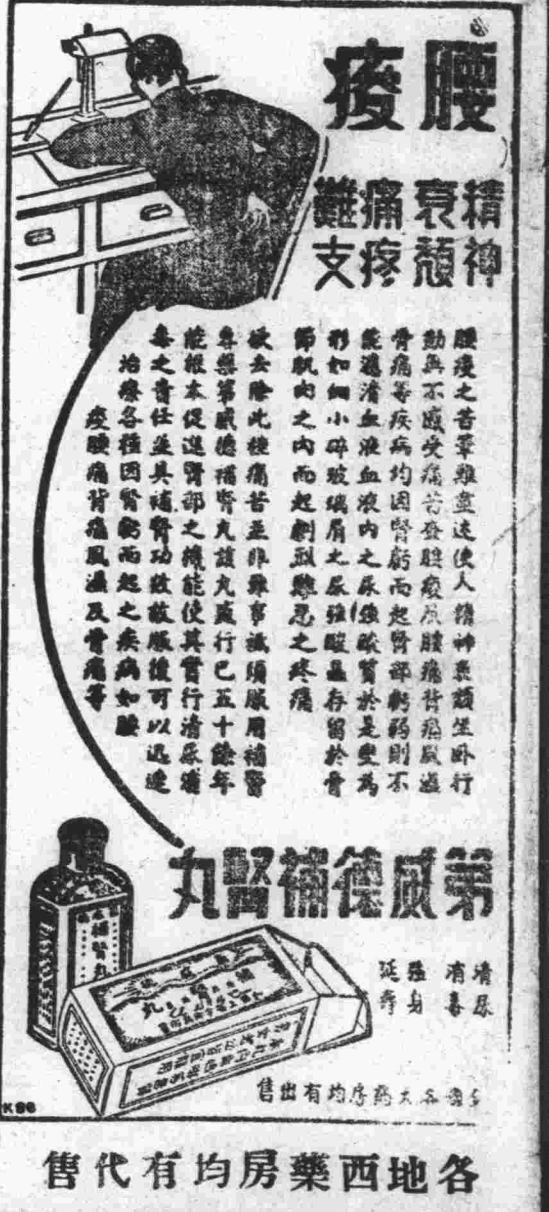 腰痠
精神衰頹
痛疼難支
腰痠之苦罩難盡述使人精神衰頹坐卧行
動無不感受痛苦查腰痠及腰痛背痛風濕
骨痛等疾病均因腎虧而起腎部虧弱則不
能濾清血液血液內之尿強酸質於是變為
形如細小碎玻璃屑之尿強酸晶存留於骨
節肌肉之內而起劇烈難忍之疼痛
欲去除此種痛苦並非難事祗須服用補腎
專藥第威德補腎丸該丸盛行已五十餘年
能根本促進腎部之機能使其實行清尿消
毒之責任並具補腎功效故服後可以迅速
治療各種因腎虧而起之疾病如腰
痠腰痛背痛風濕及骨痛等
第威德補腎丸
清尿
消毒
強身
延壽
補腎丸
各大藥房均有出售
K96
各地西藥房均有代售